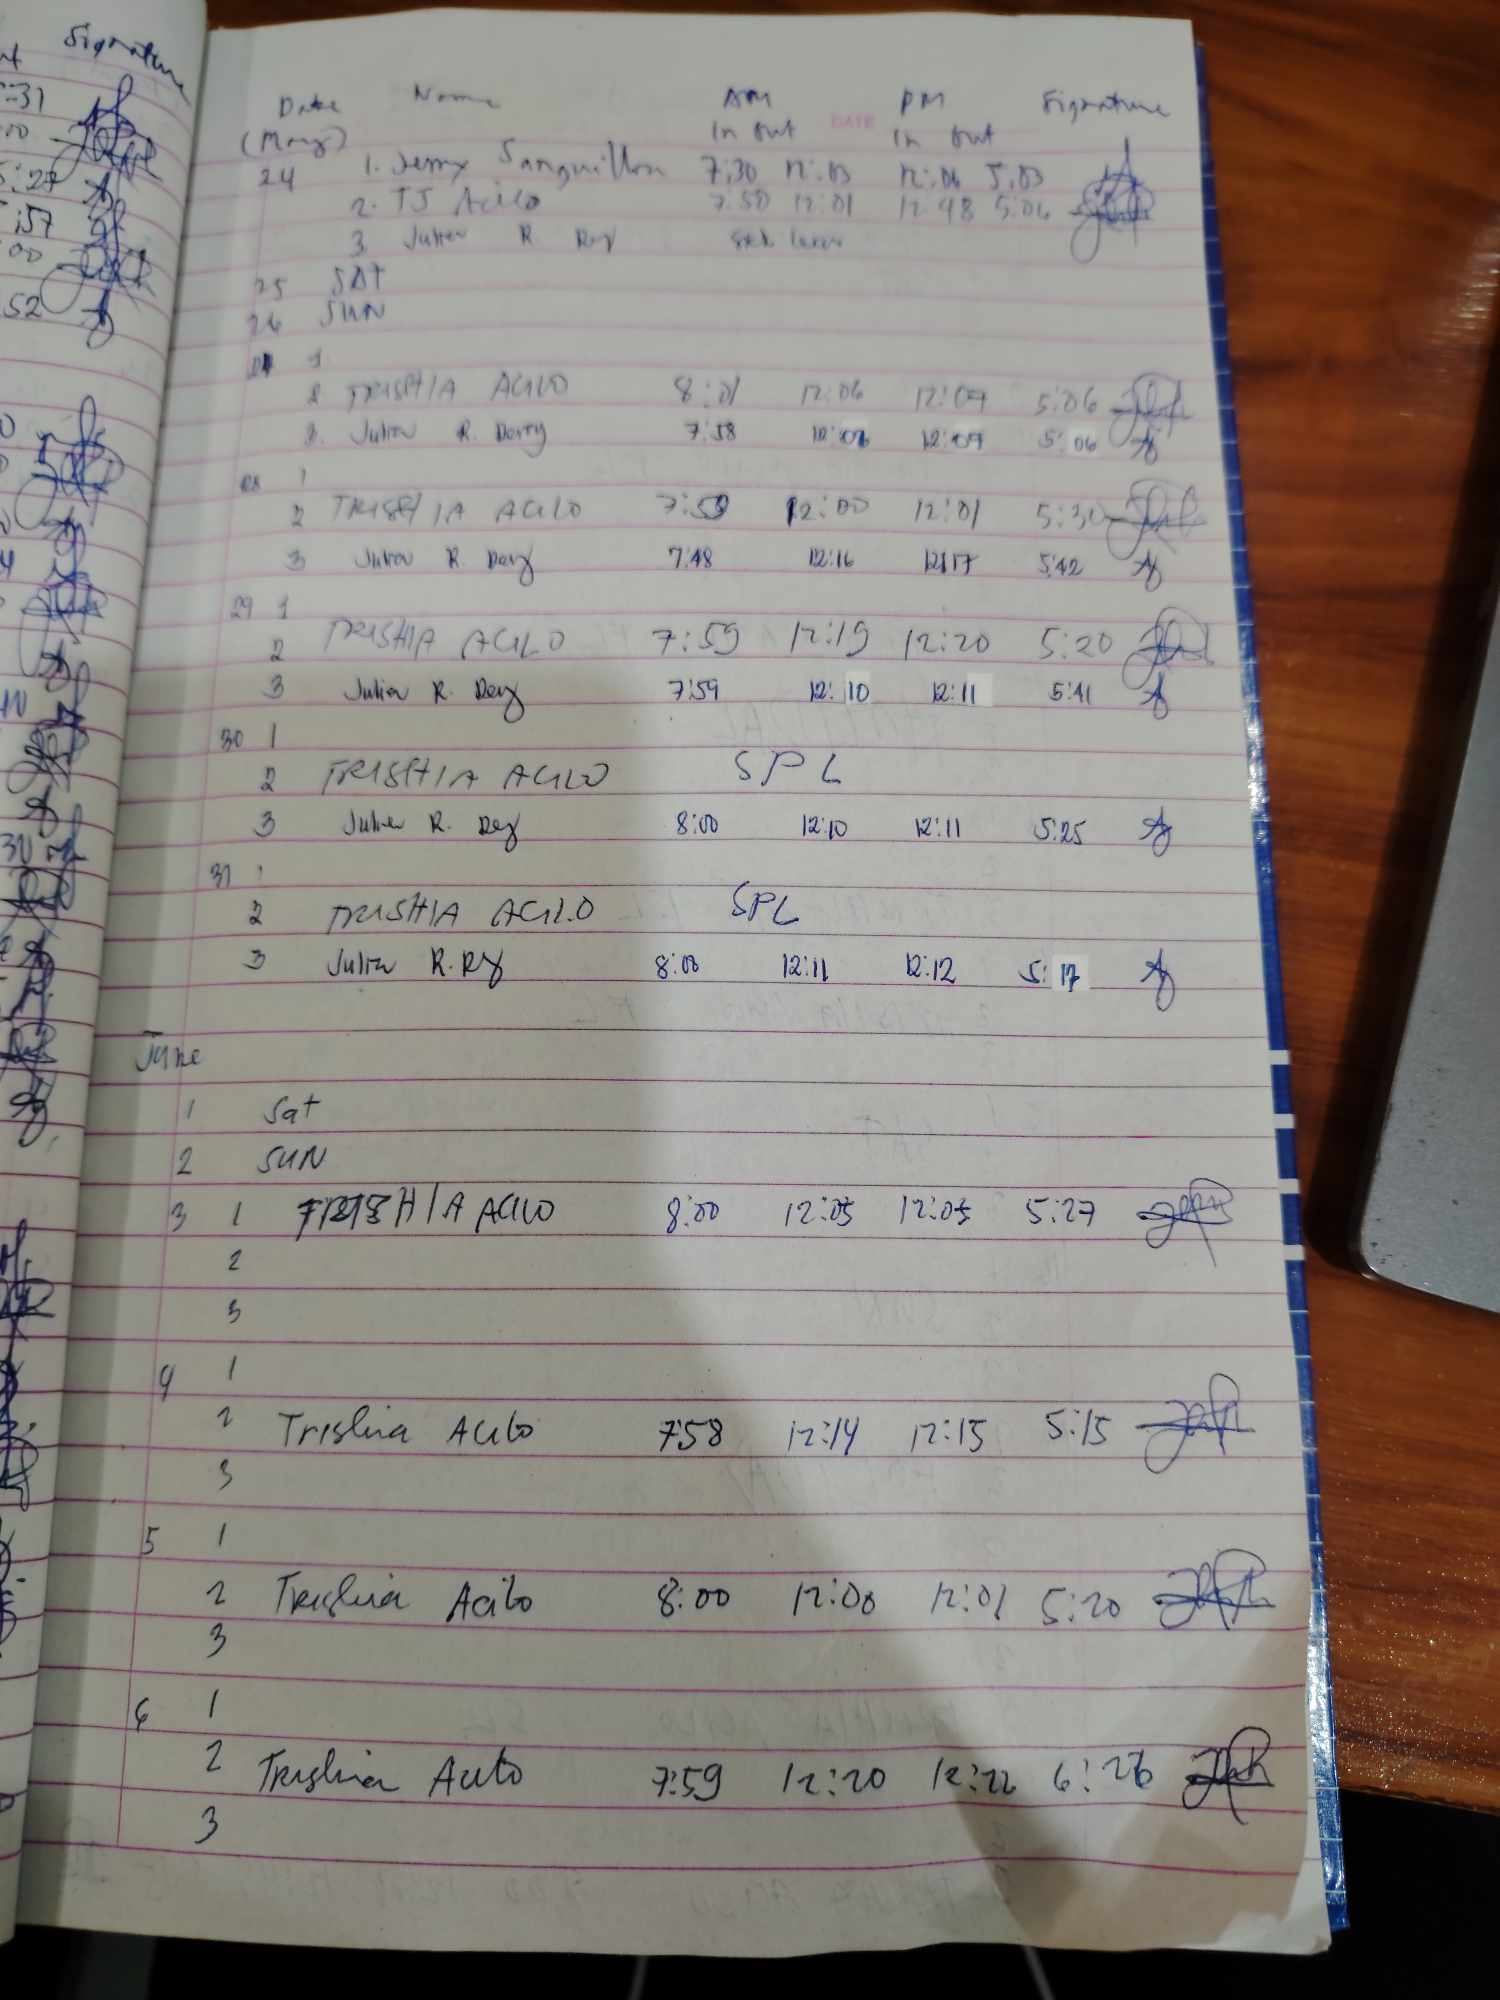 Signature
:31
5:27
:57
:00
:52
Date Name AM PM Signature
(May) In Out DATE In Out
24 1. Jenny 7:30 12:03 12:06 5:03
2. TJ Acilo 7:50 12:01 12:48 5:06
3 Julien R Dey Sick leave
25 SAT
26 SUN
1
2 TRISHIA ACILO 8:01 12:06 12:07 5:06
3. Julien R. Dey 7:58 12:06 12:07 5:06
28 1
2 TRISHIA ACILO 7:59 12:00 12:01 5:30
3 Julien R. Dey 7:48 12:16 12:17 5:42
29 1
2 TRISHIA ACILO 7:59 12:19 12:20 5:20
3 Julien R. Dey 7:59 12:10 12:11 5:41
30 1
2 TRISHIA ACILO SPL
3 Julien R. Dey 8:00 12:10 12:11 5:25
31 1
2 TRISHIA ACILO SPL
3 Julien R. Dey 8:00 12:11 12:12 5:17
June
1 Sat
2 SUN
3 1 TRISHIA ACILO 8:00 12:05 12:05 5:27
2
3
4 1
2 Trishia Acilo 7:58 12:14 12:15 5:15
3
5 1
2 Trishia Acilo 8:00 12:00 12:01 5:20
3
6 1
2 Trishia Acilo 7:59 12:20 12:22 6:26
3